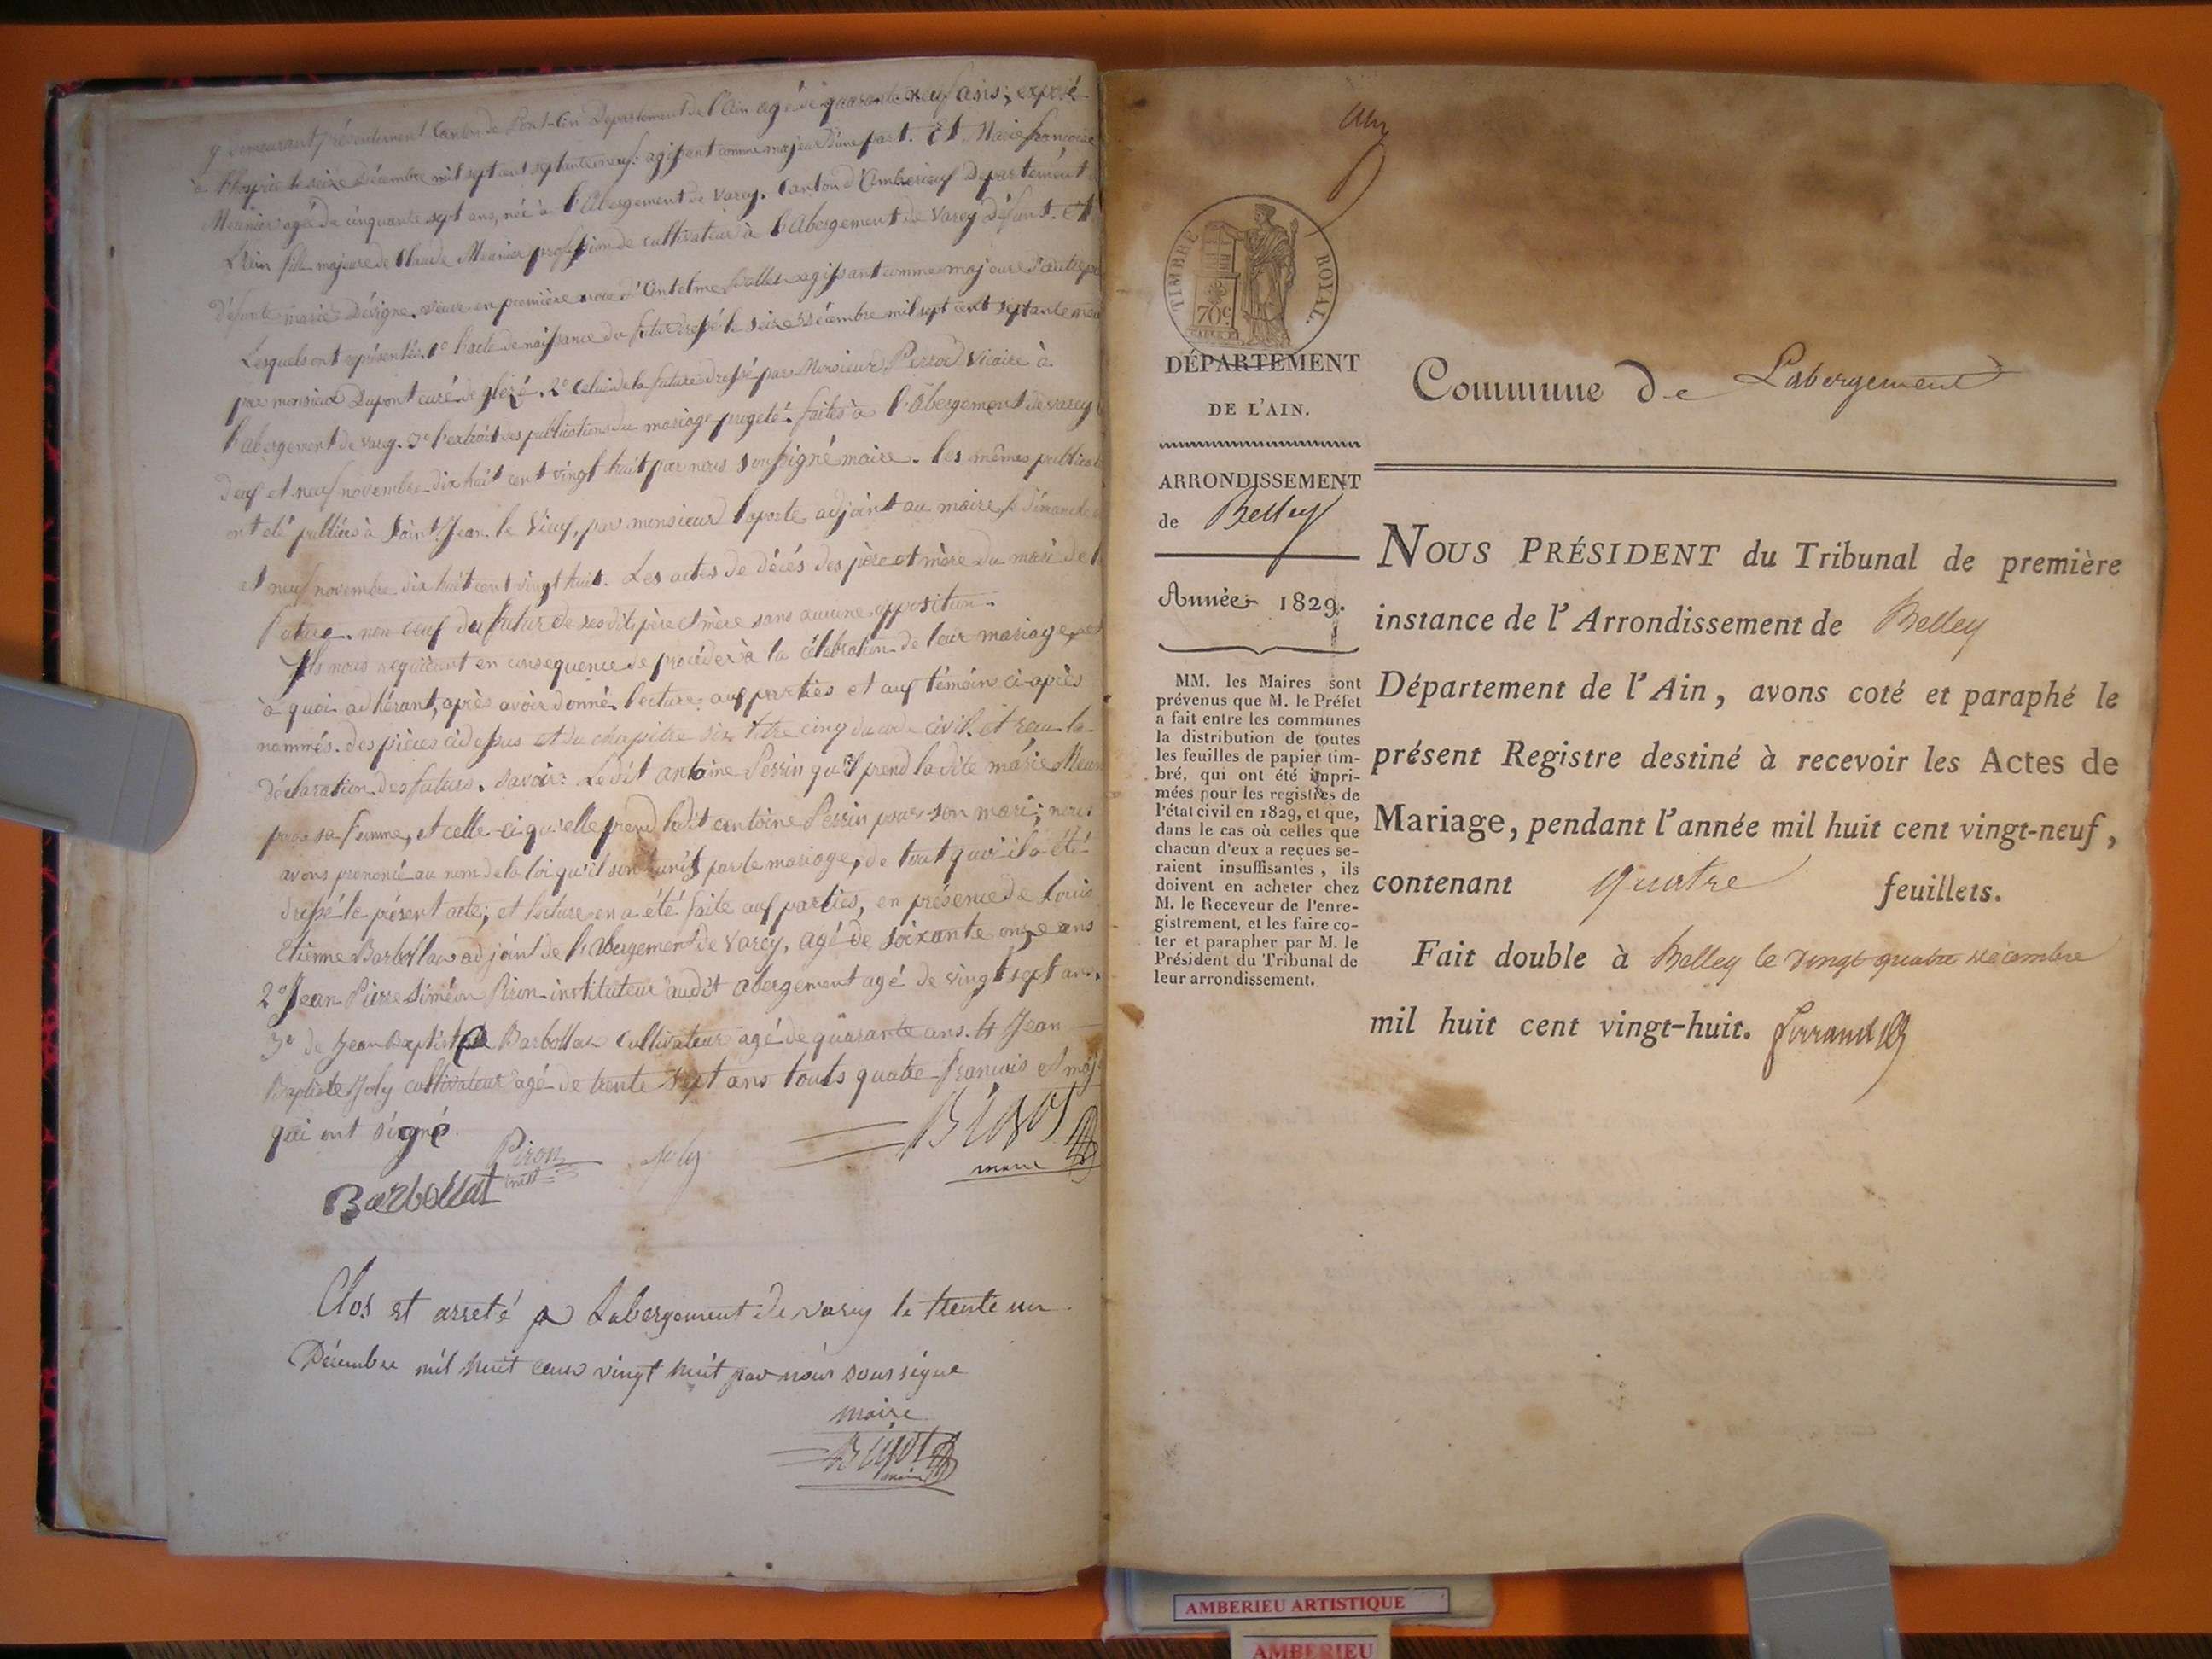 y demeurant présentement Canton de Pont-d'ain Département de l'Ain agé de quarante neuf ans; exposé
à l'hospice le seize décembre mil sept cent septante neuf: agissant comme majeur d'une part. Et Marie françoise
Meunier agée de cinquante sept ans, née à l'Abergement de Varey. Canton d'Amberieux Département
L'Ain fille majeure de Claude Meunier profession de cultivateur à l'Abergement de Varey défunt. Et
défunte marie Dévigne. veuve en première noce d'Antelme agissant comme majeure d'autre
Lesquels ont représentés. 1º l'acte de naissance du futur dressé le seize décembre mil sept cent septante neuf
par monsieur Dupont curé de. 2º Celui de la future dressé par Monsieur Perrod Vicaire à
l'abergement de varey. 3º l'extrait des publications du mariage progeté. faites à l'Abergement de varey
deux et neuf novembre dix huit cent vingt huit par nous soussigné maire. les mêmes
ont été publiées à Saint Jean le Vieux, par monsieur Laporte adjoint au maire, le Dimanche
et neuf novembre dix huit cent vingt huit. Les actes de décès des père et mère du mari de la
future. non ceux du futur de ses dits père et mère sans aucune opposition.
Ils nous requirent en consequence de procéder à la célébration de leur mariage,
à quoi adhérant, après avoir donné lecture aux parties et aux témoins ci-après
nommés. des pièces ci dessus et du chapitre six titre cinq du code civil. et reçu la
déclaration des futurs. savoir: Le dit antoine Perrin qu'il prend la dite marie
pour sa femme, et celle-ci qu'elle prend ledit antoine Perrin pour son mari; nous
avons prononcé au nom de la loi qu'il sont unis par le mariage, de tout quoi il a été
dressé le présent acte; et lecture en a été faite aux parties, en présence de Louis
Etienne Barbollat adjoint de l'abergement de Varey, agé de soixante onze ans
2º Jean Pierre Siméon Piron instituteur audit abergement agé de vingt sept ans.
3º de Jean Baptiste Barbollat Cultivateur agé de quarante ans. 4 Jean
Baptiste Joly cultivateur agé de trente sept ans touts quatre francais et
qui ont signé.
Piron
Joly
Bigot
maire
Barbollat
Clos et arreté a Labergement de varey le trente un
Décembre mil huit cent vingt huit par nous soussigné
maire
Bigot
maire
TIMBRE ROYAL.
70c
DÉPARTEMENT
DE L'AIN.
ARRONDISSEMENT
de Belley
Année 1829.
MM. les Maires sont
prévenus que M. le Préfet
a fait entre les communes
la distribution de toutes
les feuilles de papier tim-
bré, qui ont été impri-
mées pour les registres de
l'état civil en 1829, et que,
dans le cas où celles que
chacun d'eux a reçues se-
raient insuffisantes, ils
doivent en acheter chez
M. le Receveur de l'enre-
gistrement, et les faire co-
ter et parapher par M. le
Président du Tribunal de
leur arrondissement.
Commune de Labergement
NOUS PRÉSIDENT du Tribunal de première
instance de l'Arrondissement de Belley
Département de l'Ain, avons coté et paraphé le
présent Registre destiné à recevoir les Actes de
Mariage, pendant l'année mil huit cent vingt-neuf,
contenant quatre feuillets.
Fait double à Belley le vingt quatre décembre
mil huit cent vingt-huit.
AMBERIEU ARTISTIQUE
AMBERIEU